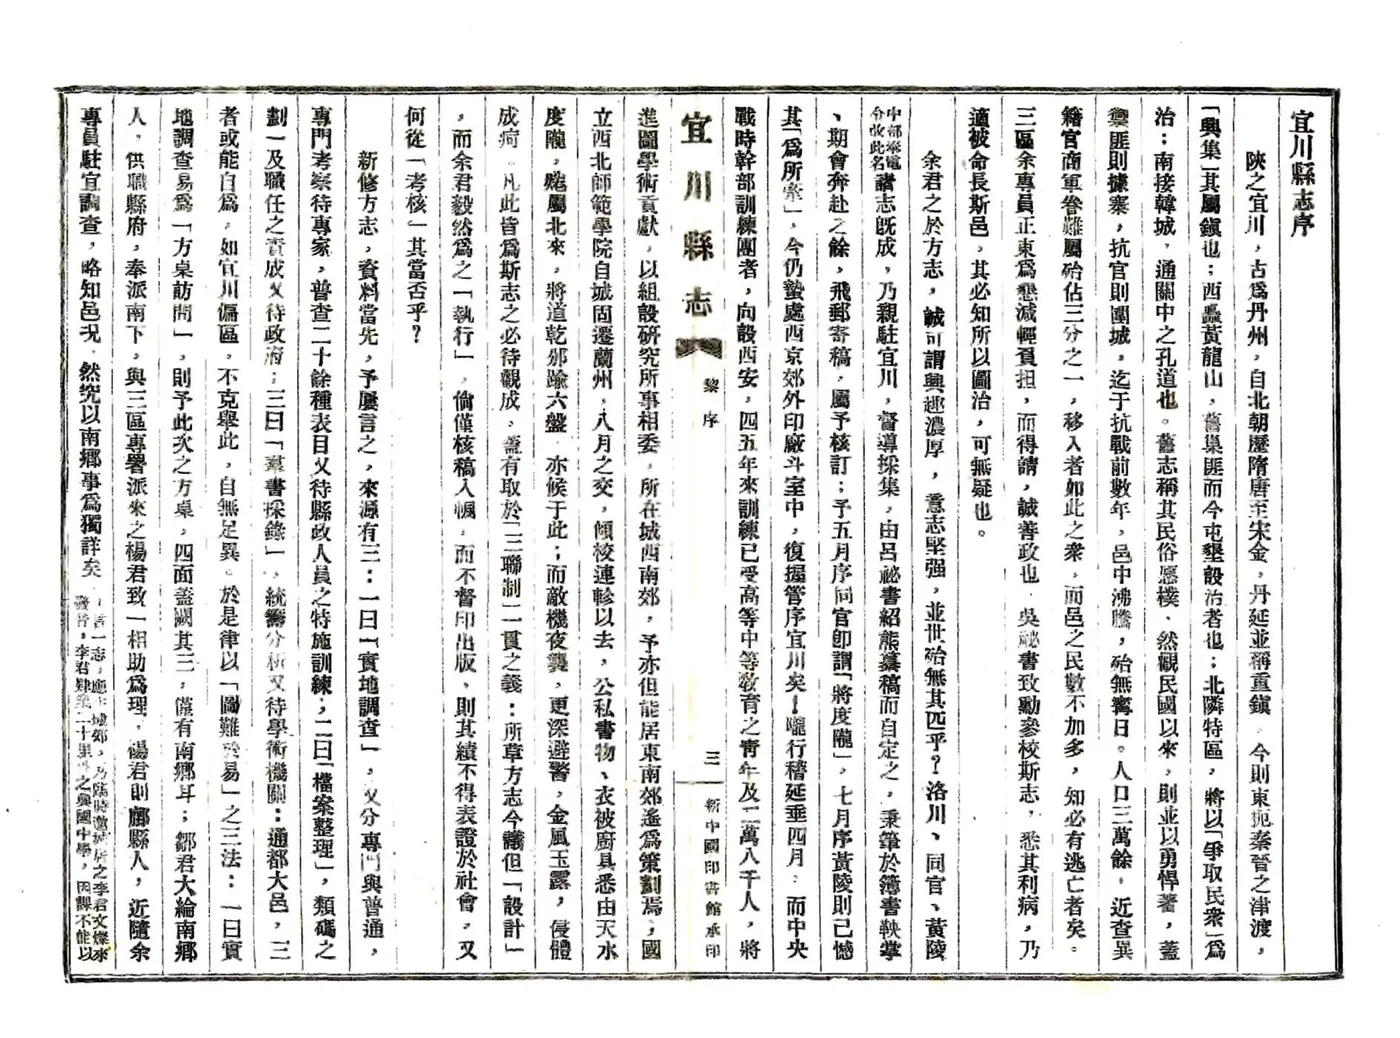 宜川縣志序
陝之宜川，古爲丹州，自北朝歷隋唐至宋金，丹延並稱重鎮。今則東扼秦晉之津渡，
「興集」其屬鎮也；西蠶黃龍山，舊巢匪而今屯墾設治者也；北隣特區，將以「爭取民衆」爲
治；南接韓城，通關中之孔道也。舊志稱其民俗愿樸，然觀民國以來，則並以勇悍著，蓋
禦匪則據寨，抗官則圍城，迄于抗戰前數年，邑中沸騰，殆無寗日。人口三萬餘，近查異
籍官商軍眷難屬殆佔三分之一，移入者如此之衆，而邑之民數不加多，知必有逃亡者矣。
三區余專員正東爲懇減輕負担，而得請，誠善政也。吳祕書致勳參校斯志，悉其利病，乃
適被命長斯邑，其必知所以圖治，可無疑也。
余君之於方志，誠可謂興趣濃厚，意志堅强，並世殆無其匹乎？洛川、同官、黃陵
中部奉電令改此名諸志旣成，乃親駐宜川，督導採集，由呂祕書紹熊纂稿而自定之，秉筆於簿書鞅掌
、期會奔赴之餘，飛郵寄稿，屬予核訂；予五月序同官卽謂「將度隴」，七月序黃陵則已憾
其「爲所累」，今仍蟄處西京郊外印廠斗室中，復握管序宜川矣！隴行稽延垂四月，而中央
戰時幹部訓練團者，向設西安，四五年來訓練已受高等中等敎育之靑年及二萬八千人，將
宜川縣志
黎序
三
新中國印書館承印
進圖學術貢獻，以組設硏究所事相委，所在城西南郊，予亦但能居東南郊遙爲策劃焉；國
立西北師範學院自城固遷蘭州，八月之交，傾校連軫以去，公私書物、衣被廚具悉由天水
度隴，眷屬北來，將道乾邠踰六盤，亦候于此；而敵機夜襲，更深避警，金風玉露，侵體
成疴。凡此皆爲斯志之必待觀成，蓋有取於「三聯制」一貫之義：所草方志今議但「設計」
，而余君毅然爲之「執行」，倘僅核稿入幟，而不督印出版，則其績不得表證於社會，又
何從「考核」其當否乎？
新修方志，資料當先，予屢言之，來源有三：一曰「實地調查」，又分專門與普通，
專門考察待專家，普查二十餘種表目又待縣政人員之特施訓練；二曰「檔案整理」，類碼之
劃一及職任之責成又待政府；三曰「羣書採錄」，統籌分析又待學術機關：通都大邑，三
者或能自爲，如宜川偏區，不克舉此，自無足異。於是律以「圖難於易」之三法：一曰實
地調查易爲「方桌訪問」，則予此次之方桌，四面蓋闕其三，僅有南鄉耳；鄒君大綸南鄉
人，供職縣府，奉派南下，與三區專署派來之楊君致一相助爲理，楊君則鄜縣人，近隨余
專員駐宜調查，略知邑况，然究以南鄉事爲獨詳矣。